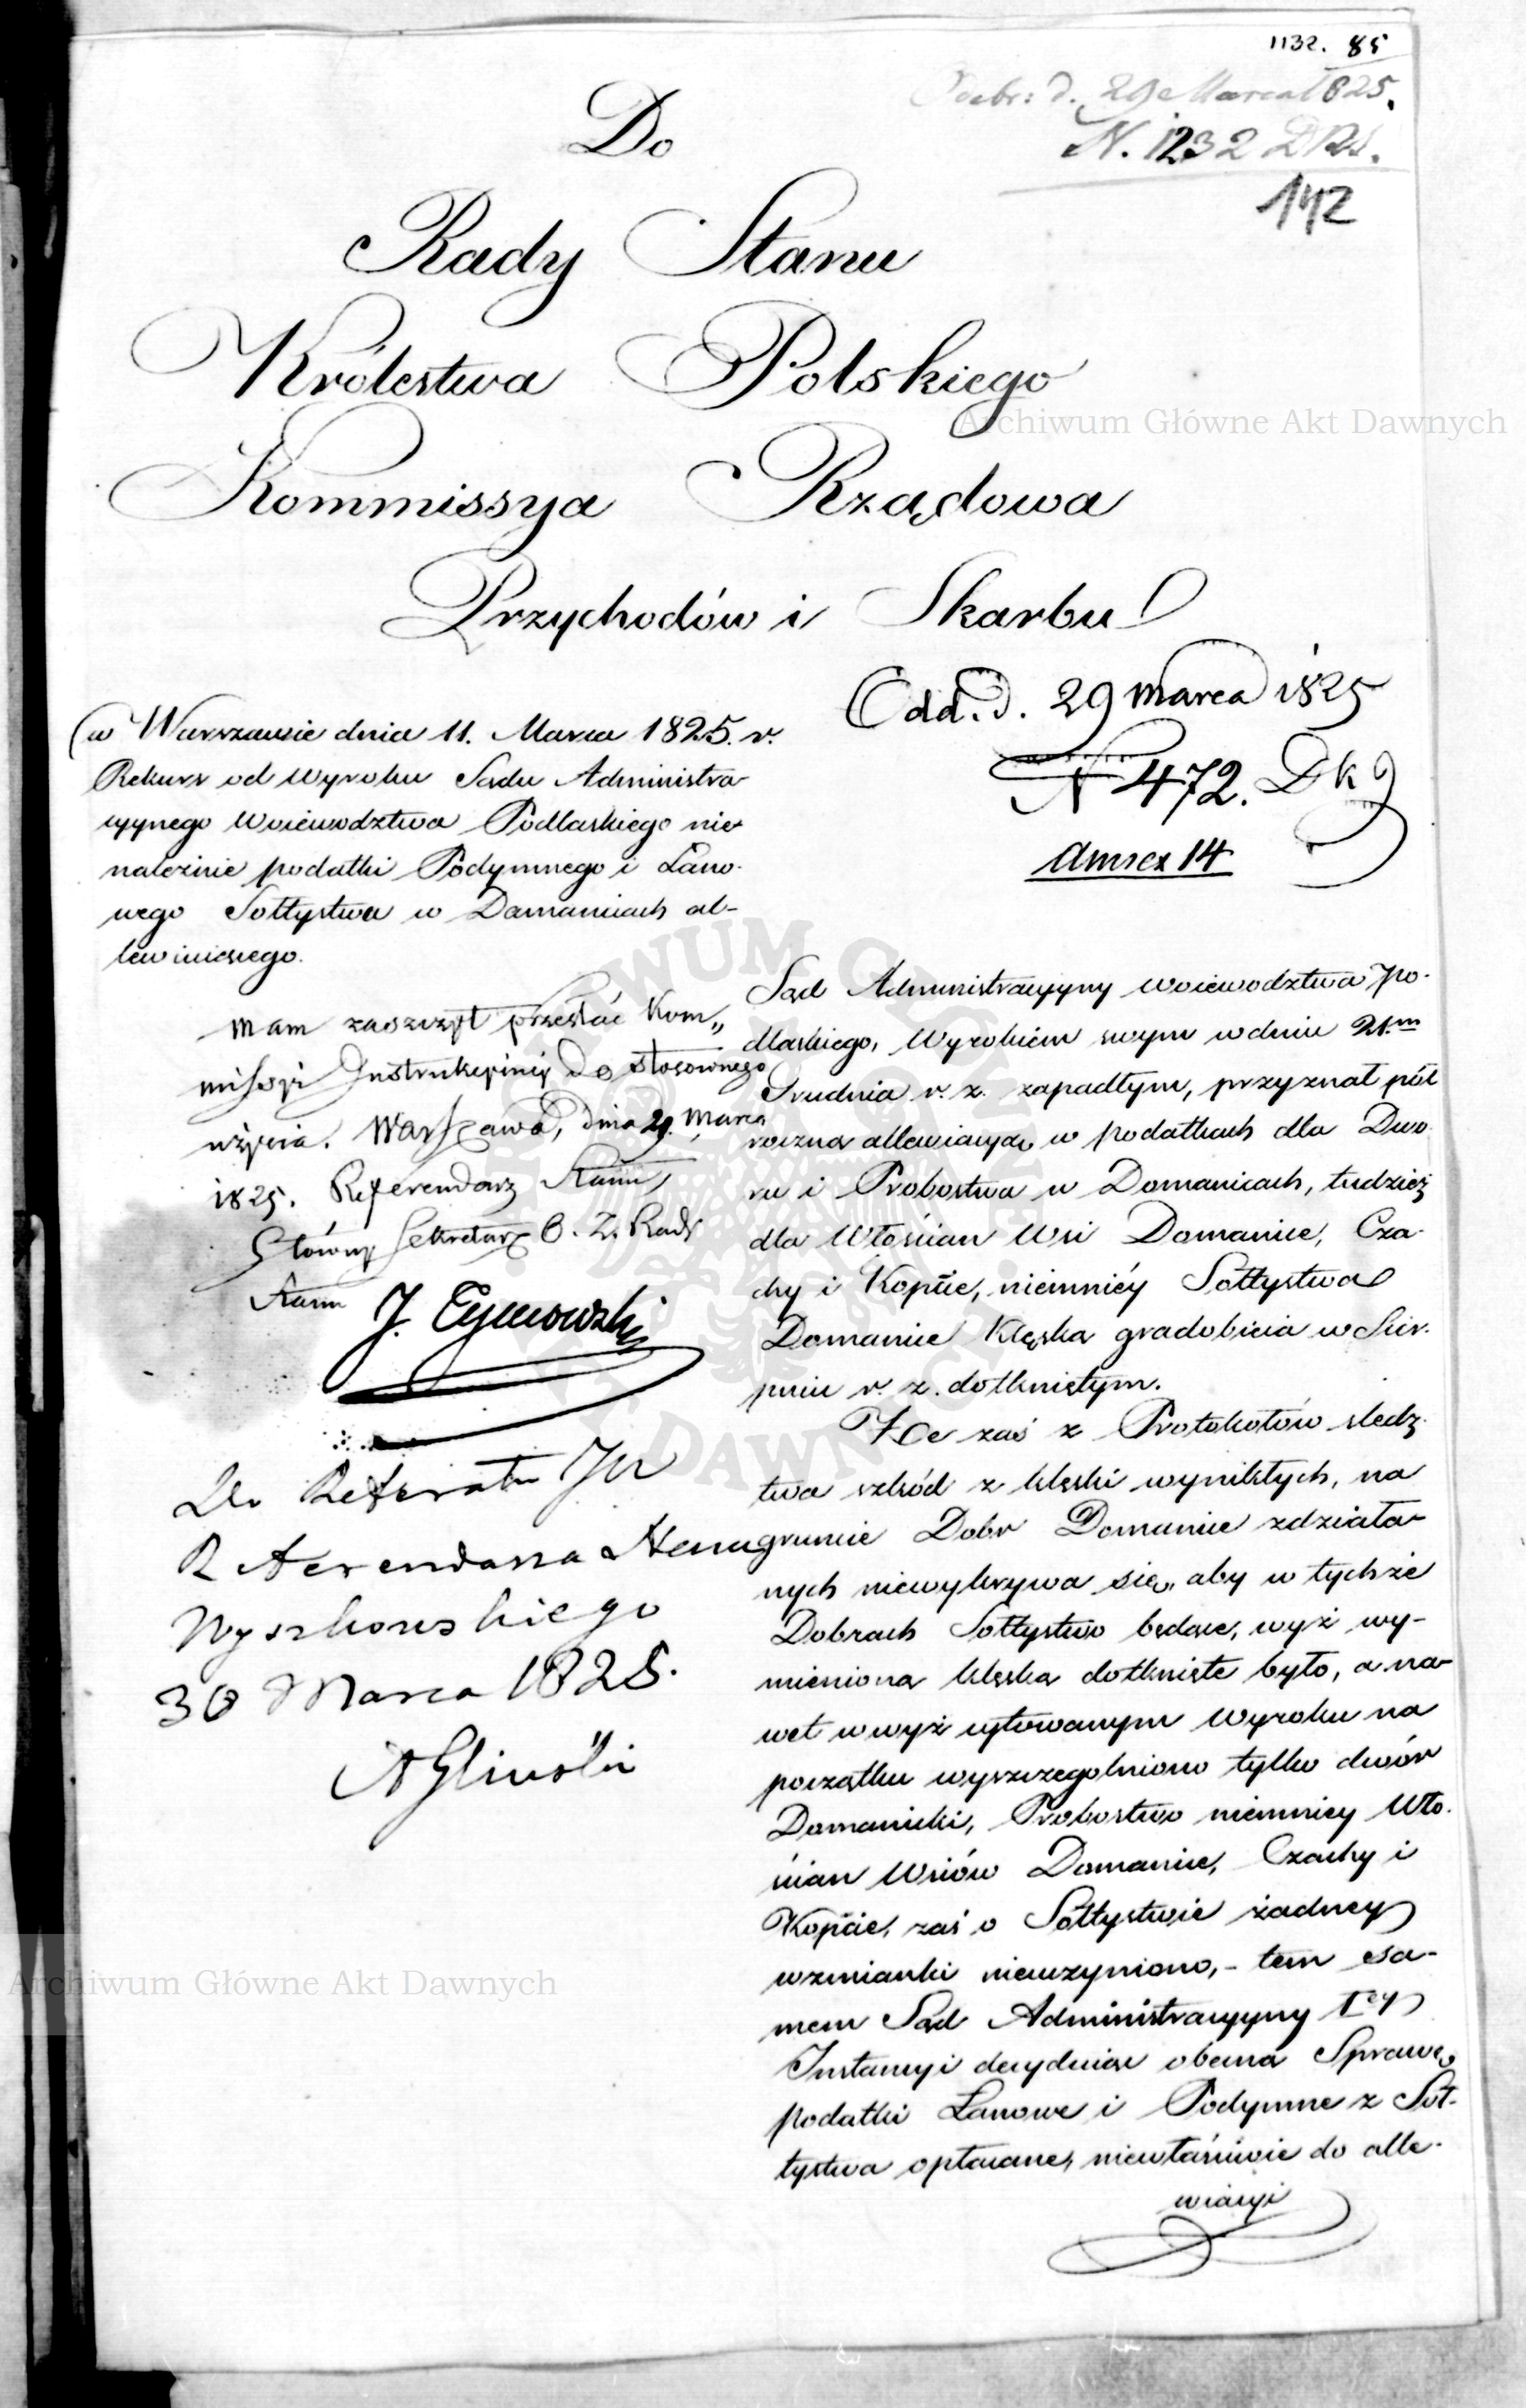 1132. 85
Odebr: d. 29 Marca 1825.
N. 1232 DRS.
142
Do
Rady Stanu
Królestwa Polskiego
Kommissya Rządowa
Przychodów i Skarbu
Odd. d. 29 marca 1825
N 472. Dk
Annex 14
w Warszawie dnia 11. Marca 1825. r.
Rekurs od Wyroku Sądu Administra-
cyjnego Województwa Podlaskiego nie-
należnie podatki Podymnego i Łano-
wego Sołtystwa w Domanicach al-
lewiuiącego.
Mam zaszczyt przesłać Kom„
missyi Instrukcyinéy do stosownego
użycia. Warszawa, dnia 29. Marca
1825. Referendarz Stanu,
Główny Sekretarz O. Z. Rady
Stanu J. Tymowski
Do Referatu JW
Referendarza Stanu
Wyszkowskiego
30 Marca 1825.
AGliński
Sąd Administracyyny Województwa Po-
dlaskiego, Wyrokiem swym w dniu 21.m
Grudnia r. z. zapadłym, przyznał pół
roczną allewiacyą w podatkach dla Dwo-
ru i Probostwa w Domanicach, tudzież
dla Włościan Wsi Domanice, Cza-
chy i Kopcie, niemniéy Sołtystwa
Domanice klęską gradobicia w Sier-
pniu r. z. dotkniętym.
Że zaś z Protokołów śledz-
twa szkód z klęski wynikłych, na
gruncie Dobr Domanice zdziała-
nych niewykrywa się, aby w tychże
Dobrach Sołtystwo będące, wyż wy-
mienioną klęską dotknięte było, a na-
wet w wyż cytowanym Wyroku na
początku wyszczególniono tylko dwór
Domanicki, Probostwo niemniey Wło-
ścian Wsiów Domanice, Czachy i
Kopcie, zaś o Sołtystwie żadney
wzmianki nieuczyniono, - tem sa-
mem Sąd Administracyyny Iey
Instancyi decyduiąc obecną Sprawę,
podatki Łanowe i Podymne z Soł-
tystwa opłacane, niewłaściwie do alle-
wiacyi
Archiwum Główne Akt Dawnych
Archiwum Główne Akt Dawnych
ARCHIWUM GŁÓWNE AKT DAWNYCH